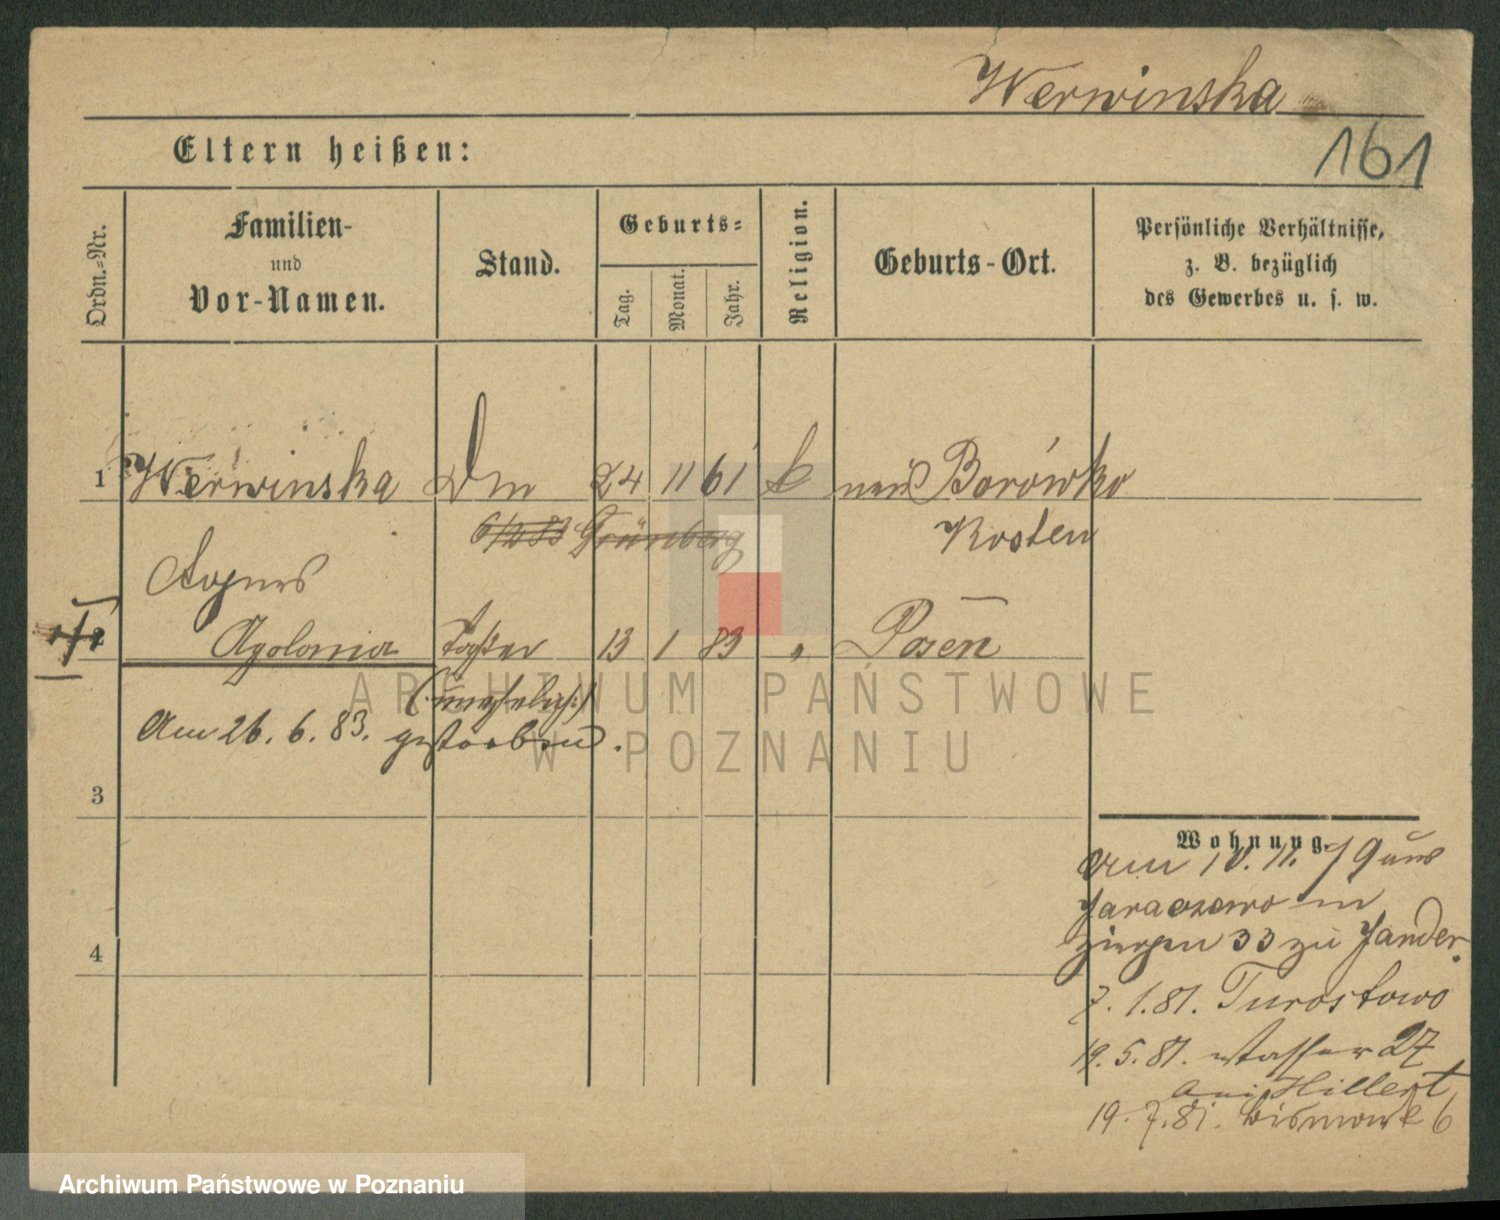 Werwinska
161
Eltern heißen:
Ordn.-Nr.
Familien-
und
Vor-Namen.
Stand.
Geburts-
Tag.
Monat.
Jahr.
Religion.
Geburts-Ort.
Persönliche Verhältnisse,
z. B. bezüglich
des Gewerbes u. s. w.
1 Werwinska Dm 24 11 61 k Borówko
6/12 83 Grünberg Kosten
Agnes
2 Apolonia Tochter 13 1 83 " Posen
(unehelich)
Am 26. 6. 83. gestorben.
ARCHIWUM PAŃSTWOWE
W POZNANIU
3
4
Wohnung.
Am 10. 11. 79 aus
Jaraczewo in
Ziegen 33 zu Jander.
7. 1. 81. Turostowo
19. 5. 81. Wasser 27
bei Hillert
19. 7. 81. Bismark 6
Archiwum Państwowe w Poznaniu